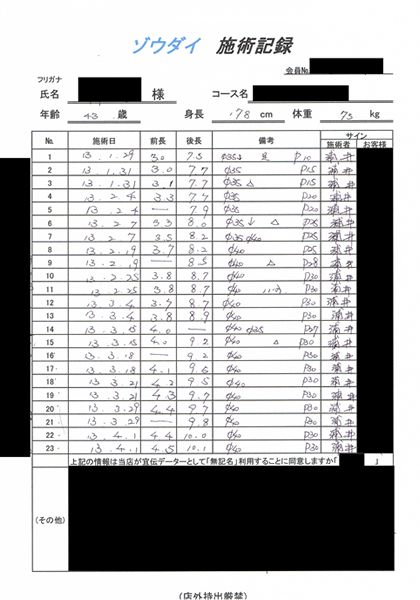 ゾウダイ 施術記録
会員No.
フリガナ
氏名 様 コース名
年齢 43 歳 身長 178 cm 体重 73 kg
No. 施術日 前長 後長 備考 サイン
施術者 お客様
1 13.1.29 3.0 7.5 P10
2 13.1.31 3.0 7.7 φ35 P15
3 13.1.31 3.1 7.7 φ35 △ P15
4 13.2.4 3.3 7.7 φ35 P20
5 13.2.4 — 7.9 φ35 P20
6 13.2.7 3.3 8.0 φ35 ↓ △ P25
7 13.2.7 3.5 8.2 φ35 φ40 P25
8 13.2.19 3.7 8.2 φ40 P25
9 13.2.19 — 8.5 φ40 △ P28
10 13.2.25 3.8 8.7 φ40 P30
11 13.2.25 3.8 8.7 φ40 P30
12 13.3.4 3.7 8.7 φ40 P30
13 13.3.4 3.8 8.9 φ40 P30
14 13.3.15 4.0 — φ40 φ35
15 13.3.15 4.0 9.2 φ40 △ P30
16 13.3.18 — 9.2 φ40 P30
17 13.3.18 4.1 9.6 φ40 P30
18 13.3.21 4.2 9.5 φ40 P30
19 13.3.21 4.3 9.7 φ40 P30
20 13.3.29 4.4 9.7 φ40 P30
21 13.3.29 — 9.8 φ40 P30
22 13.4.1 4.4 10.0 φ40 P30
23 13.4.1 4.5 10.1 φ40 P30
上記の情報は当店が宣伝データーとして「無記名」利用することに同意しますか「 」
(その他)
(店外持出厳禁)